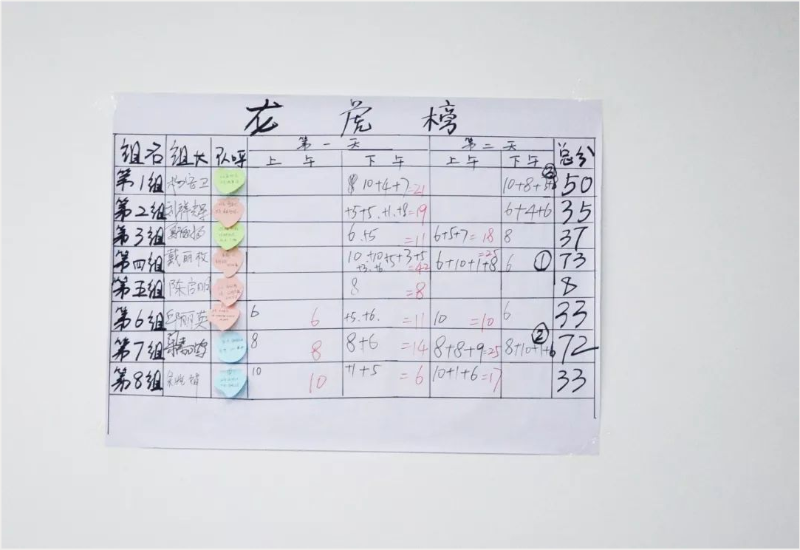 龙虎榜
组名 组长 队呼 第一天 第二天 总分
上午 下午 上午 下午
第1组 10+4+7=21 10+8+ 50
第2组 +5+5 +1+8=19 6+4+6 35
第3组 6+5 =11 6+5+7=18 8 37
第四组 戴丽 10+10+5+3+5 6+10+1+8 6 ① 73
第五组 陈 8 =8 8
第6组 邱丽英 6 6 +5+6 =11 10 =10 6 33
第7组 8 8 8+6 =14 8+8+9=25 8+10+1+6 ② 72
第8组 10 10 +1+5 =6 10+1+6=17 33